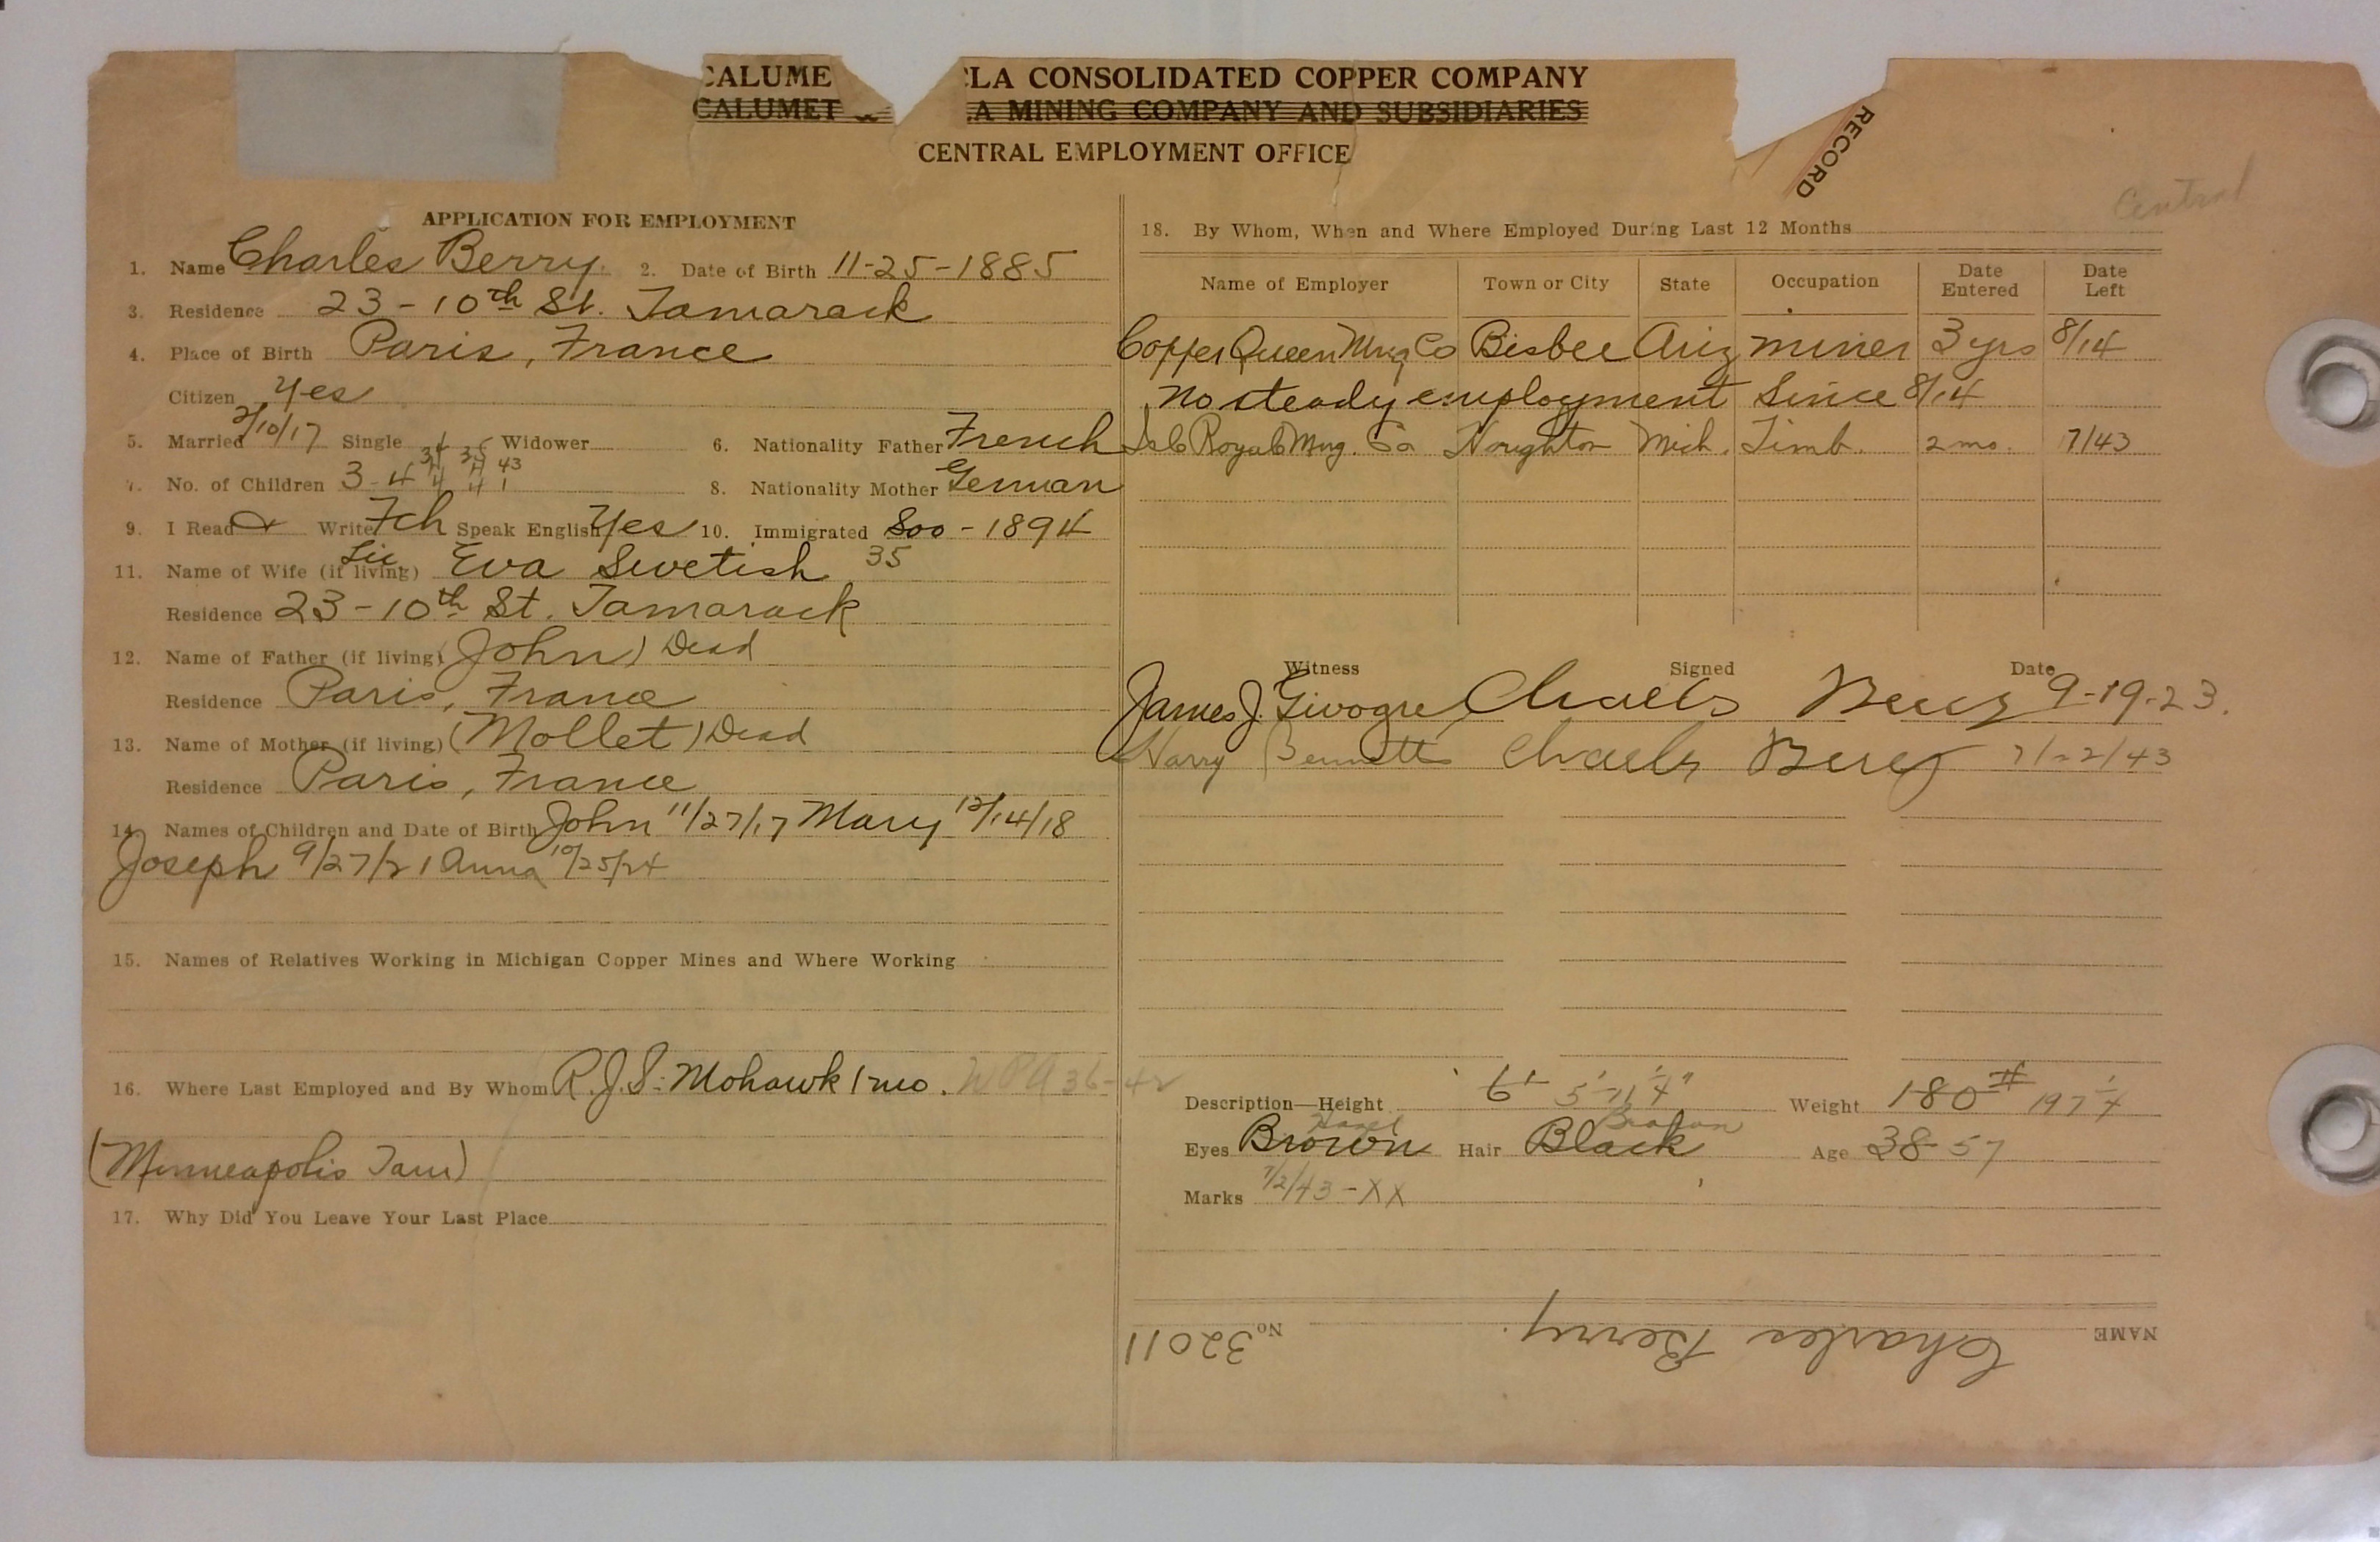 CALUME LA CONSOLIDATED COPPER COMPANY
CALUMET & A MINING COMPANY AND SUBSIDIARIES
CENTRAL EMPLOYMENT OFFICE
RECORD
Central
APPLICATION FOR EMPLOYMENT
1. Name Charles Berry. 2. Date of Birth 11-25-1885
3. Residence 23-10th St. Tamarack
4. Place of Birth Paris, France
Citizen Yes
5. Married 2/10/17 Single Widower 6. Nationality Father French
34 35 43
7. No. of Children 3-4 4 4 1 8. Nationality Mother German
9. I Read & Write Fch Speak English Yes 10. Immigrated Soo - 1894
11. Name of Wife (if living) Eva Swetish 35
Residence 23-10th St. Tamarack
12. Name of Father (if living) (John) Dead
Residence Paris, France
13. Name of Mother (if living) (Mollet) Dead
Residence Paris, France
14. Names of Children and Date of Birth John 11/27/17 Mary 12/14/18
Joseph 9/27/21 Anna 10/25/24
15. Names of Relatives Working in Michigan Copper Mines and Where Working
16. Where Last Employed and By Whom R.J.S. Mohawk 1 mo. WPA 36-42
(Minneapolis Tam)
17. Why Did You Leave Your Last Place
18. By Whom, When and Where Employed During Last 12 Months
Name of Employer Town or City State Occupation Date Entered Date Left
Copper Queen Mng Co Bisbee Ariz miner 3 yrs 8/14
No steady employment Since 8/14
Isle Royale Mng. Co Houghton Mich. Timb. 2 mo. 7/43
Witness Signed Date
James J. Charels Berry 9-19-23.
Harry Bennetts Charels Berry 7/22/43
Description—Height 6' 5'-11 1/4" Weight 180# 197 1/4
Hazel Brown
Eyes Brown Hair Black Age 38 57
Marks 7/2/43 - XX
NAME Charles Berry. No. 32011